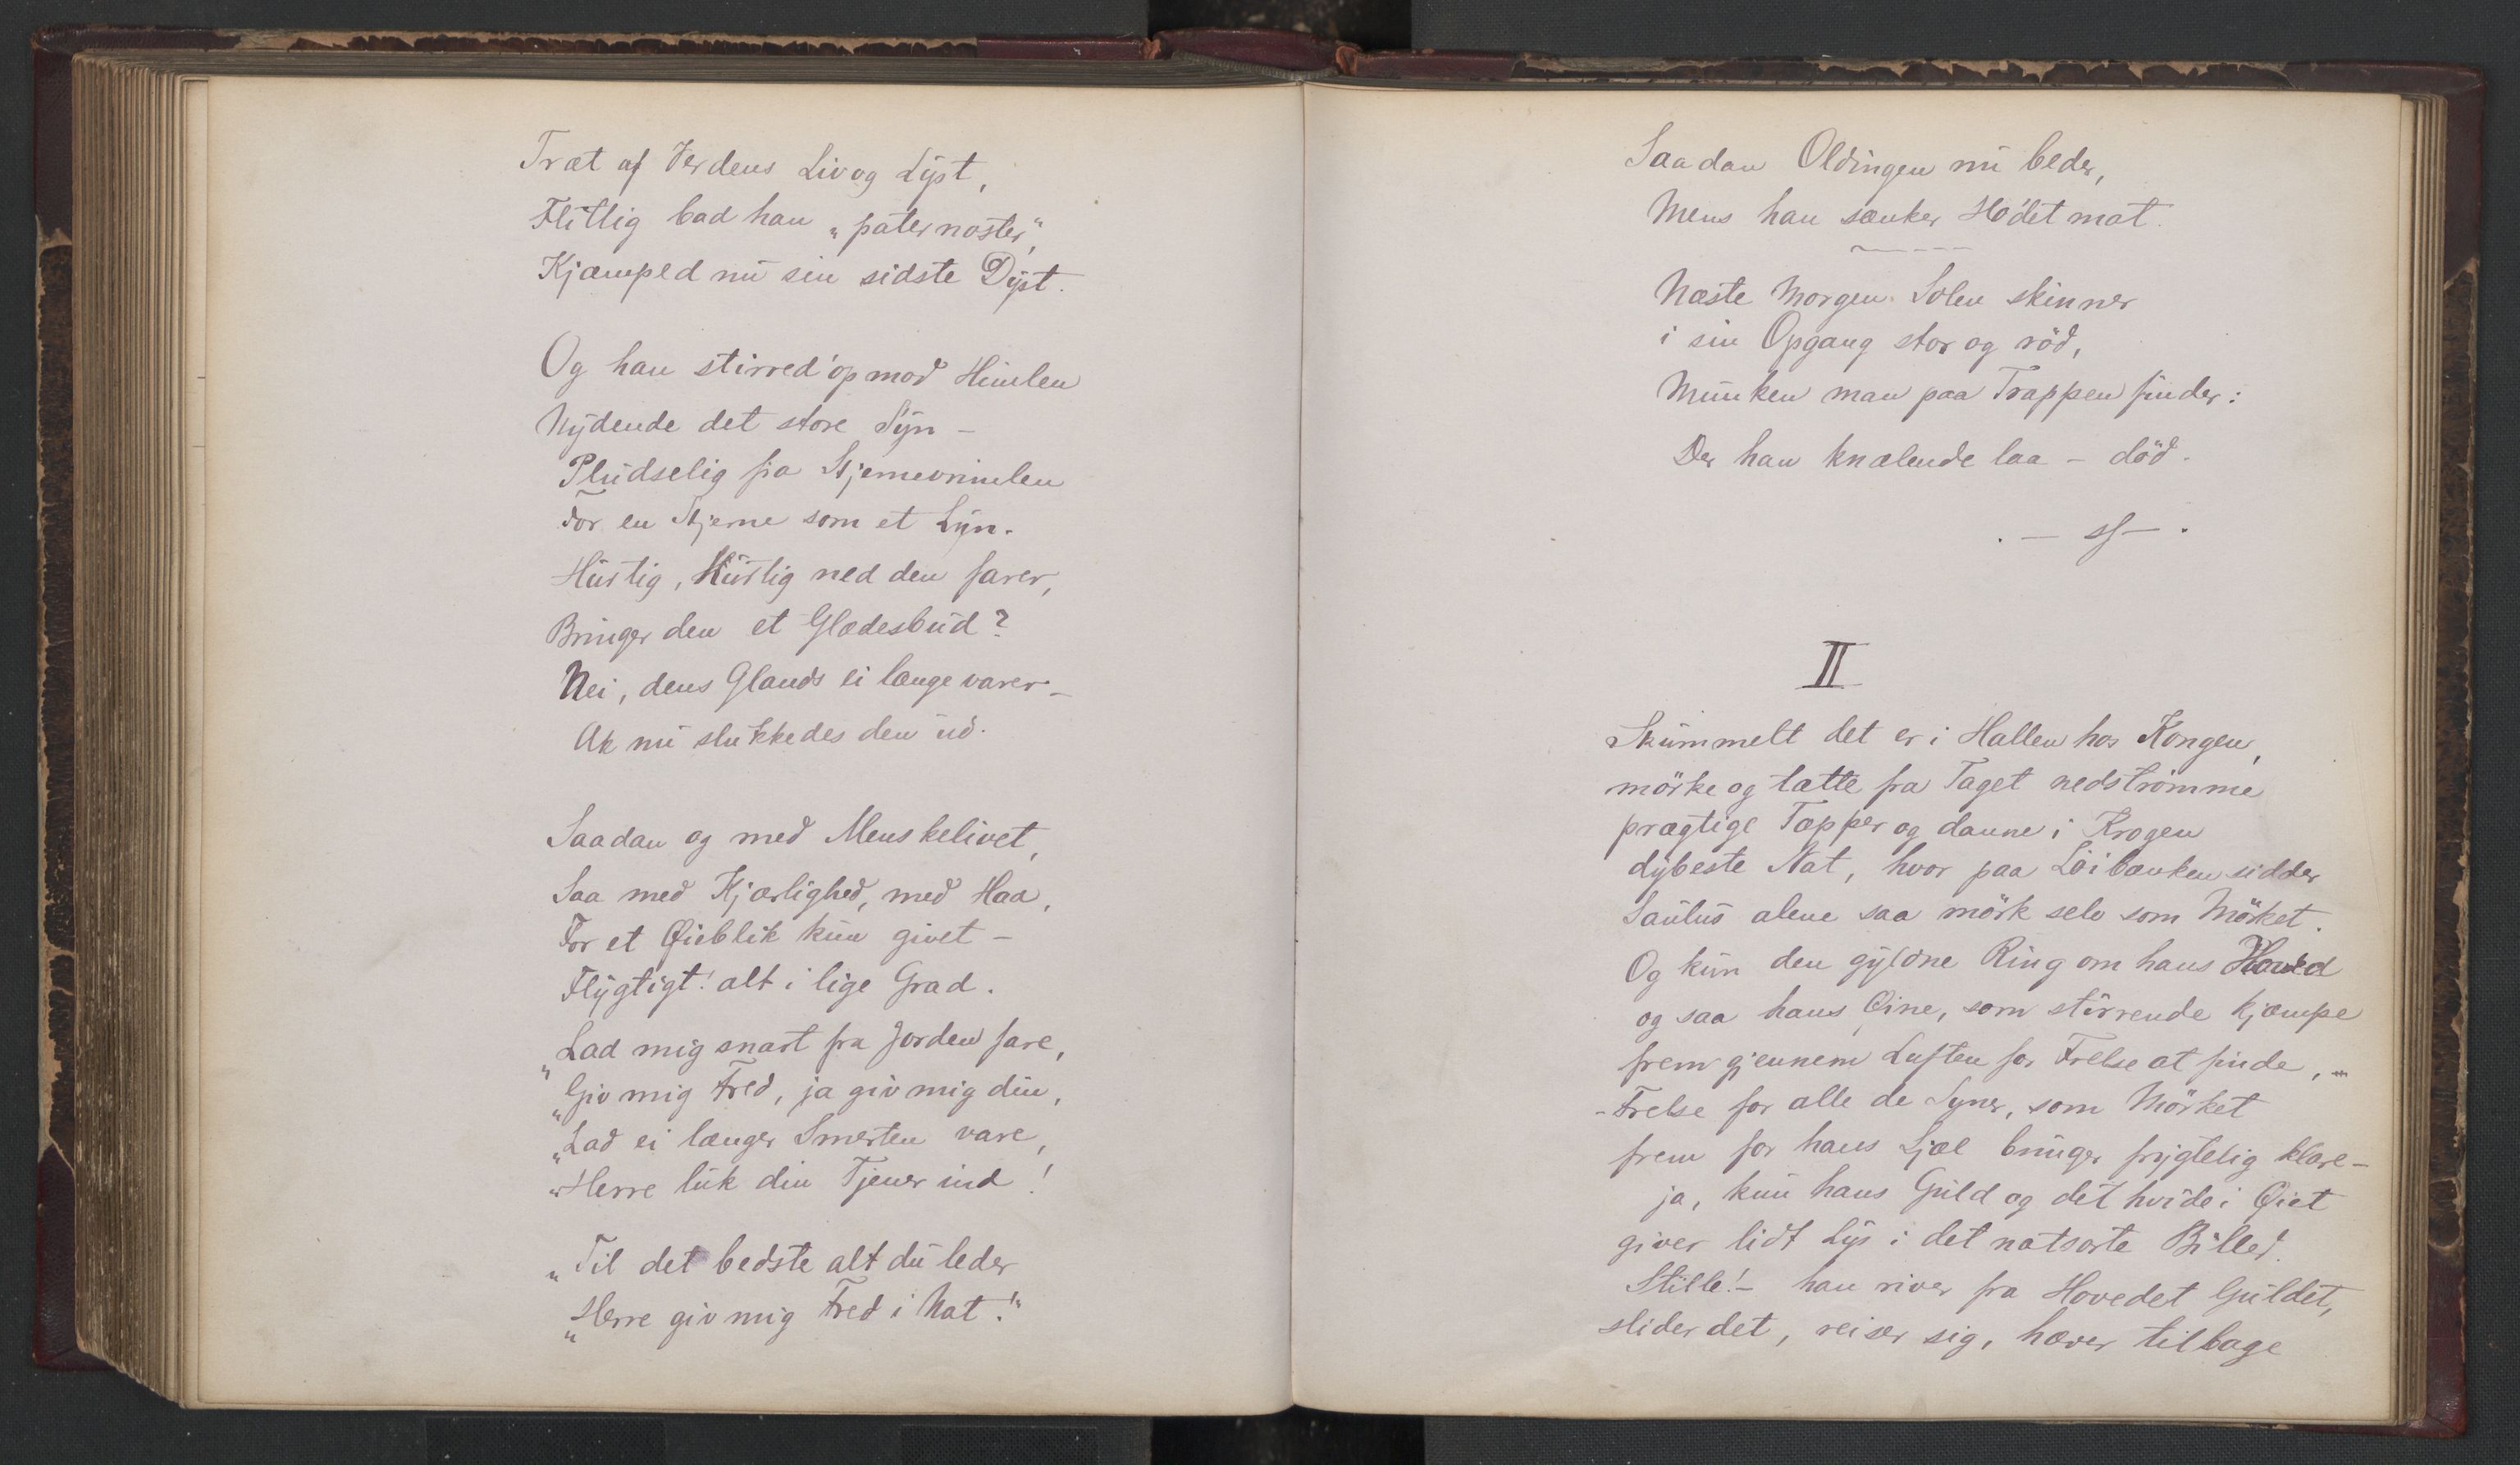 Træt af Verdens Liv og Lyst,
Flittig bad han „pater noster“,
Kjæmped nu sin sidste Dyst.
Og han stirred' op mod Himlen
Nydende det store Syn –
Pludselig fra Stjernevrimlen
For en Stjerne som et Lyn.
Hurtig, Hurtig ned den farer,
Bringer den et Glædesbud?
Nei, dens Glands ei længe varer –
Ak nu slukkedes den ud.
Saadan og med Menskelivet,
Saa med Kjærlighed, med Had,
For et Øieblik kun givet –
Flygtigt! alt i lige Grad.
„Lad mig snart fra Jorden fare,
„Giv mig Fred, ja giv mig din,
„Lad ei længer Smerten vare,
„Herre luk din Tjener ind!
„Til det bedste alt du leder
„Herre giv mig Fred i Nat!“
Saadan Oldingen nu beder,
Mens han sænker Ho'det mat.
Næste Morgen Solen skinner
i sin Opgang stor og röd,
Munken man paa Trappen finder:
Der han knælende laa – död.
II
Skummelt det er i Hallen hos Kongen,
mörke og tætte fra Taget nedströmme
prægtige Tæpper og danne i Krogen
dybeste Nat, hvor paa Löibænken sidder
Saulus alene saa mörk selv som Mörket.
Og kun den gyldne Ring om hans Hoved
og saa hans Øine, som stirrende kjæmpe
frem gjennem Luften for Frelse at finde, –
– Frelse for alle de Syner, som Mörket
frem for hans Sjæl bringer frygtelig klare –
ja, kun hans Guld og det hvide i Øiet
giver lidt Lys i det natsorte Billed.
Stille! – han river fra Hovedet Guldet,
slider det, reiser sig, hæver tilbage